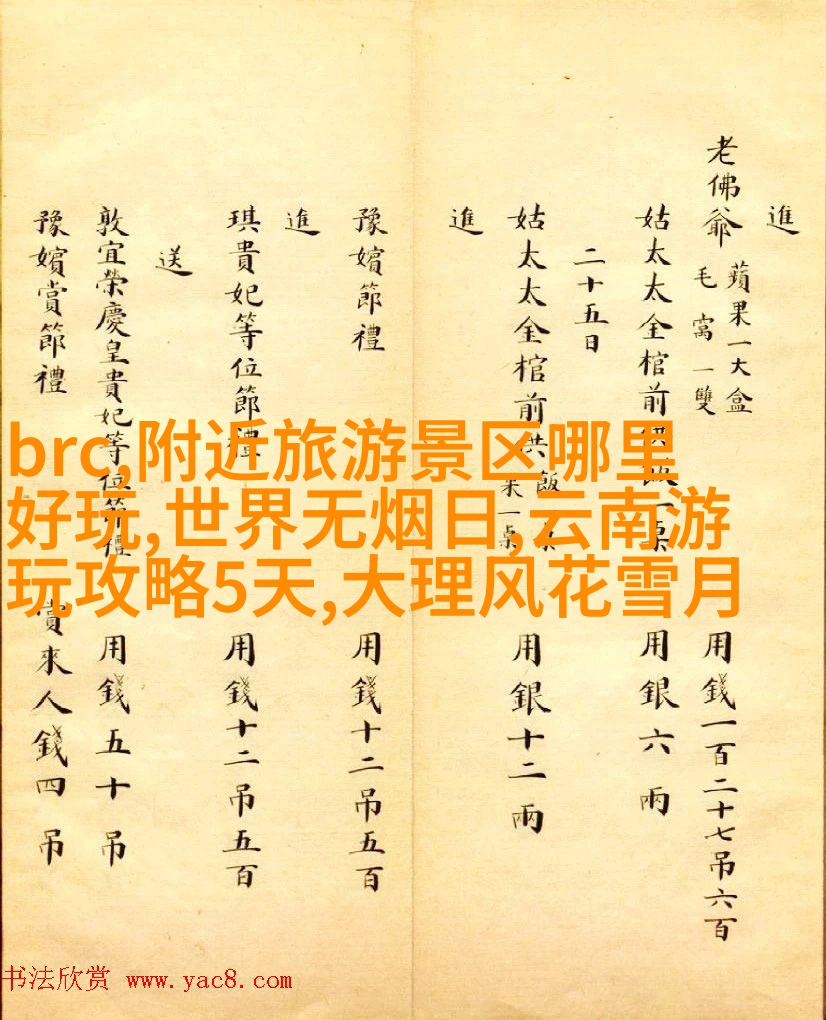 進
老佛爺 蘋果一大盒 毛窩一雙 用錢一百二十七吊六百
姑太太金棺前供飯一桌 用銀六兩
二十五日
姑太太金棺前供 飯一桌 果一桌 用銀十二兩
進
豫嬪節禮 用錢十二吊五百
進
琪貴妃等位節禮 用錢十二吊五百
送
敦宜榮慶皇貴妃等位節禮 用錢五十吊
豫嬪賞節禮 賞來人錢四吊
brc,附近旅游景区哪里
好玩,世界无烟日,云南游
玩攻略5天,大理风花雪月
书法欣赏 www.yac8.com